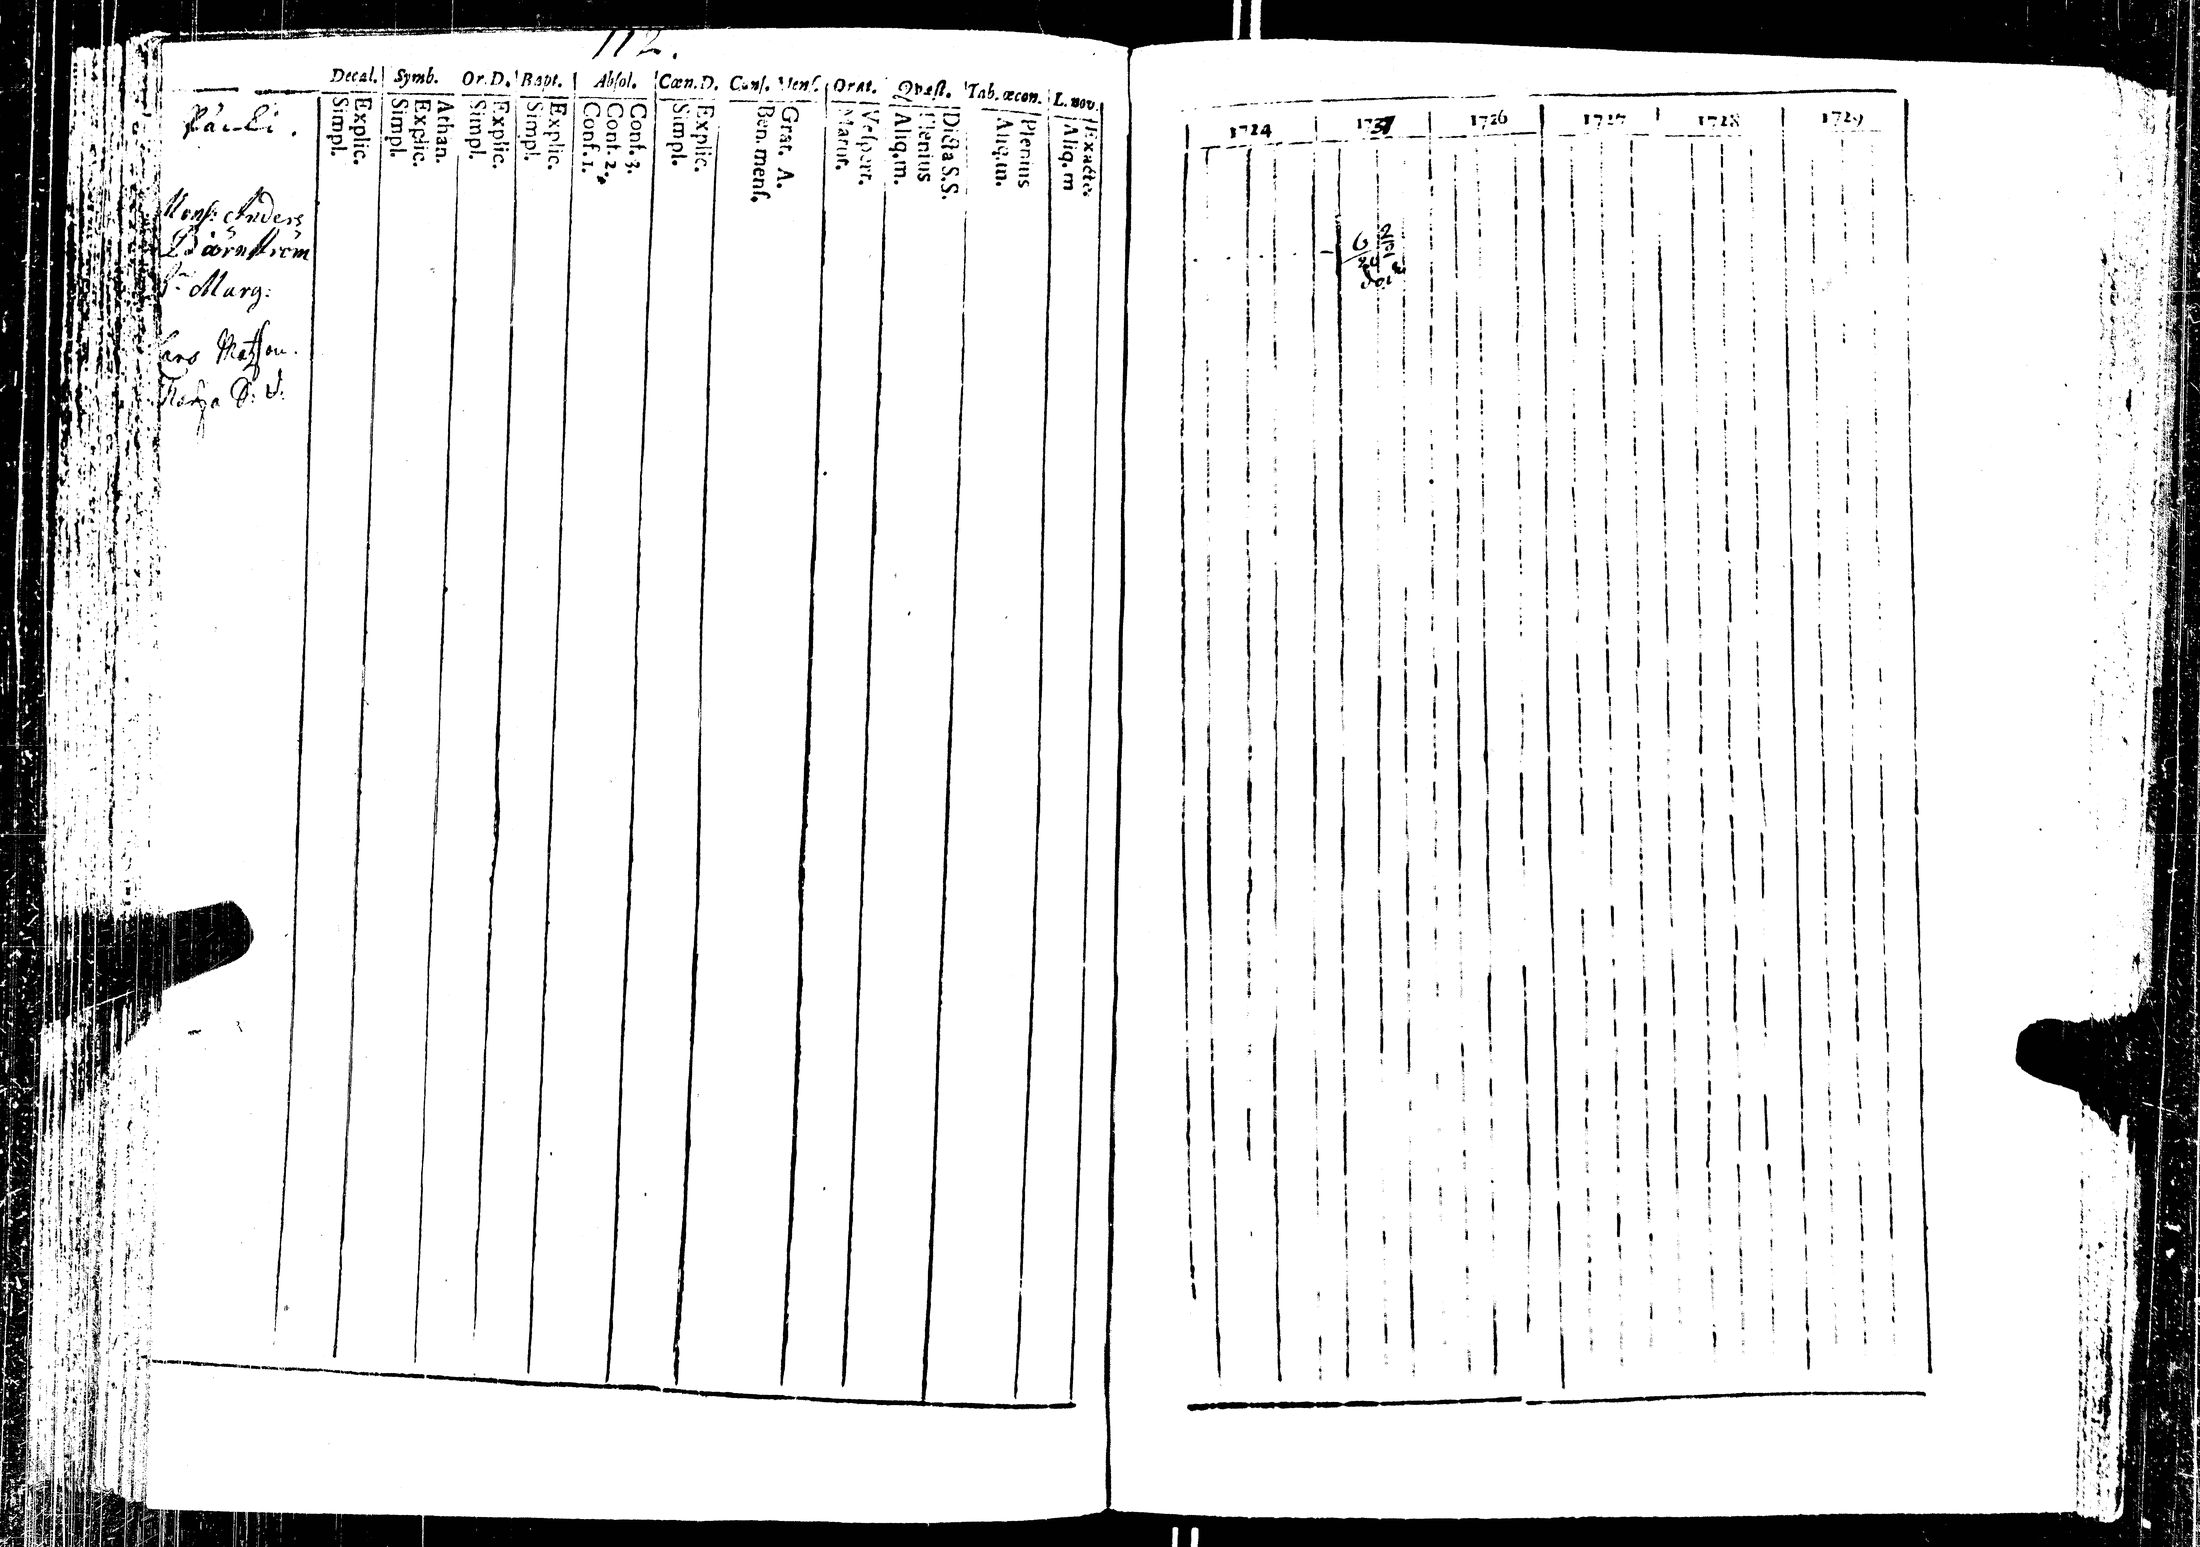 112.
Decal. Symb. Or. D. Bapt. Absol. Cœn. D. Conf. Mens. Orat. Qvæst. Tab. œcon. L. nov.
Explic. Simpl. Athan. Explic. Simpl. Explic. Simpl. Explic. Simpl. Conf. 3. Conf. 2. Conf. 1. Explic. Simpl. Grat. A. Ben. mens. Vespert. Matut. Dicta S.S. Plenius Aliq. m. Plenius Aliq. m. Exacte. Aliq. m
Mons: Anders
Biörnström
H. Marg:
Lars Matsson.
1724 1737 1726 1727 1728 1729
6
24